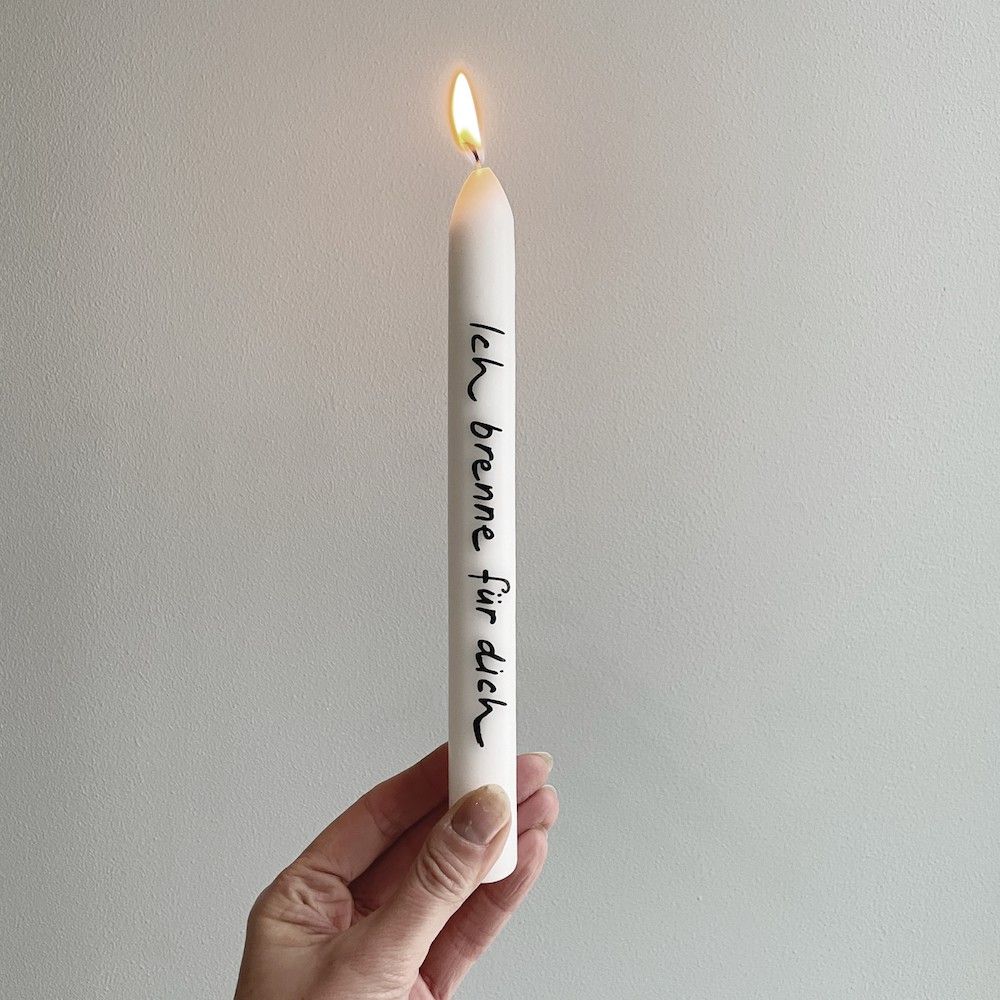 Ich brenne für dich